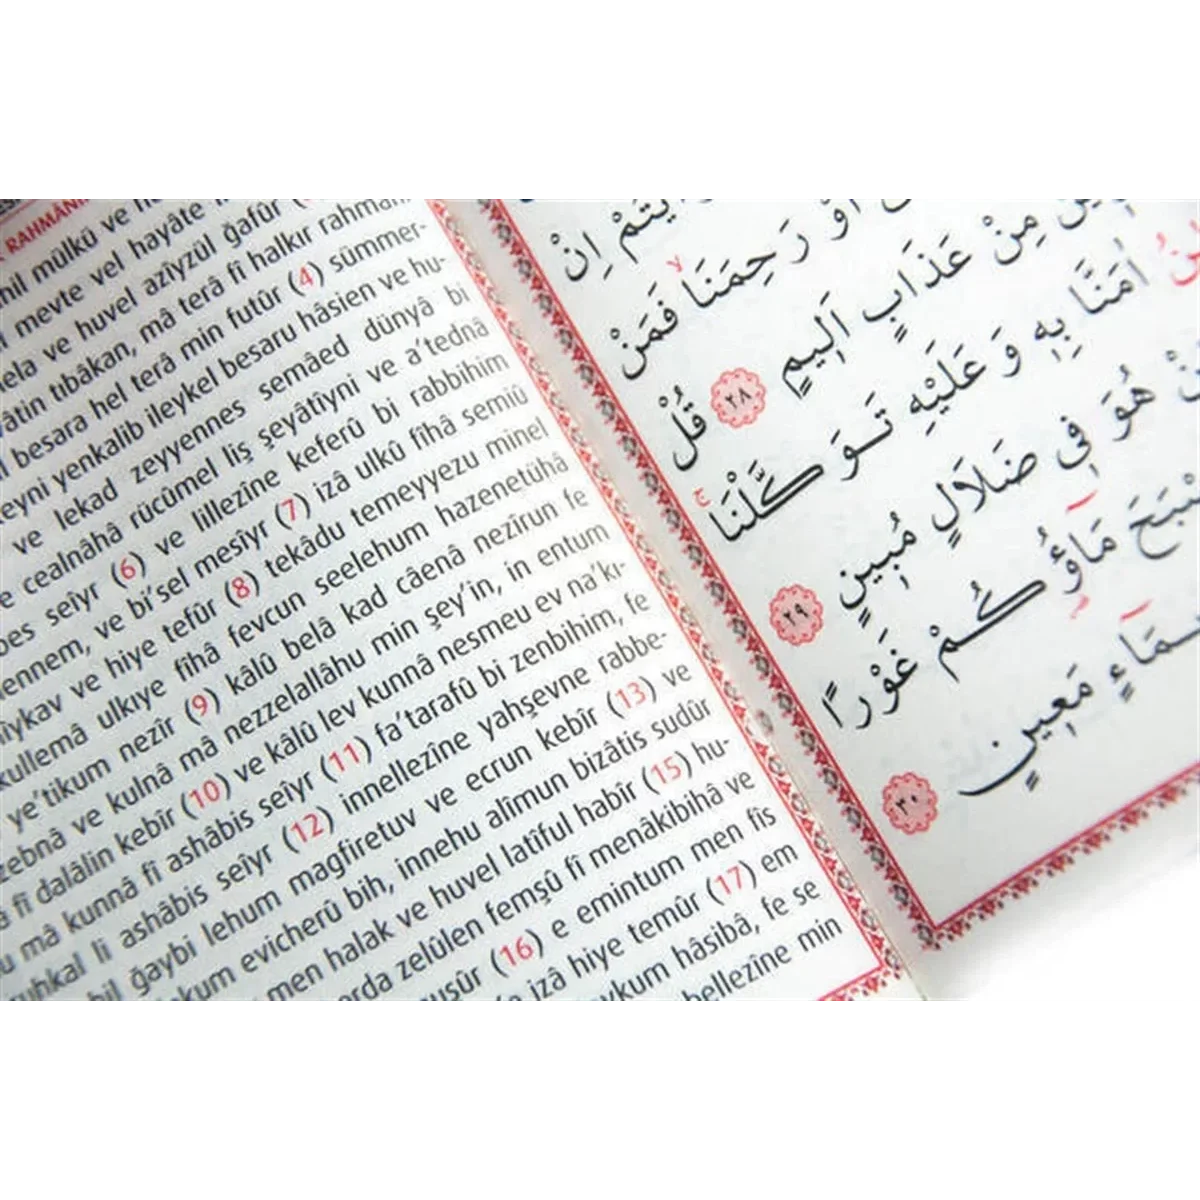 RAHMÂNİ
mülkü ve
mevte vel hayâte
ve huvel azîyzül ğafûr
tıbâkan, mâ terâ fî halkır rahmâni
besara hel terâ min futûr (4) sümmer-
yenkalib ileykel besaru hâsien ve hu-
ve lekad zeyyennes semâed dünyâ bi
cealnâhâ rücûmel liş şeyâtîyni ve a'tednâ
seîyr (6) ve lillezîne keferû bi rabbihim
ve bi'sel mesîyr (7) izâ ulkû fîhâ semiû
ve hiye tefûr (8) tekâdu temeyyezu minel
ulkıye fîhâ fevcun seelehum hazenetühâ
ye'tikum nezîr (9) kâlû belâ kad câenâ nezîrun fe
ve kulnâ mâ nezzelallâhu min şey'in, in entum
fî dalâlin kebîr (10) ve kâlû lev kunnâ nesmeu ev na'kı-
mâ kunnâ fî ashâbis seîyr (11) fa'tarafû bi zenbihim, fe
li ashâbis seîyr (12) innellezîne yahşevne rabbe-
ğaybi lehum magfiretuv ve ecrun kebîr (13) ve
evicherû bih, innehu alîmun bizâtis sudûr
men halak ve huvel latîful habîr (15) hu-
zelûlen femşû fî menâkibihâ ve
(16) e emintum men fîs
izâ hiye temûr (17) em
hâsibâ, fe se
min
يْتُمْ اِنْ
اَوْ رَحِمَنَا فَمَنْ
مِنْ عَذَابٍ اَلِيمٍ ٢٨ قُلْ
اٰمَنَّا بِهِ وَ عَلَيْهِ تَوَكَّلْنَا
هُوَ فِى ضَلَالٍ مُبِينٍ ٢٩
مَاؤُكُمْ غَوْرًا
مَعِينٍ ٣٠